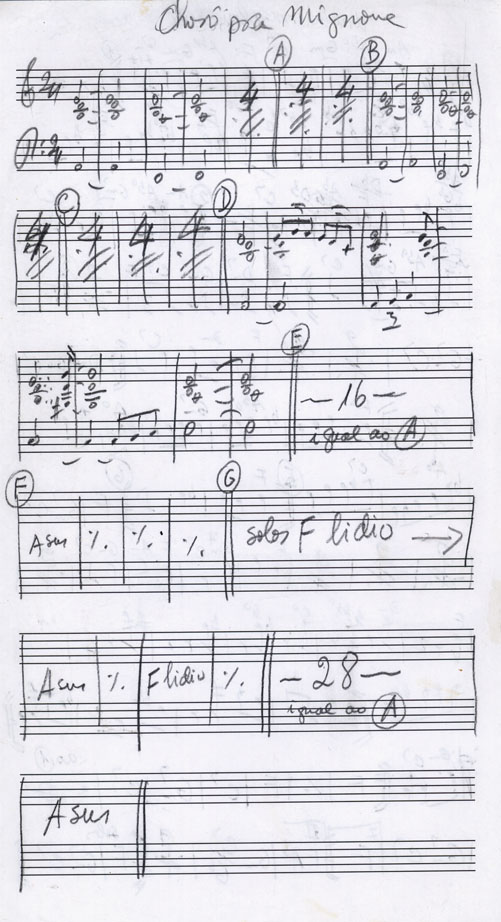 Choro pra Mignone
A B
2 4 4 4 4
2 4
C D
4 4 4 4
3
E
- 16 -
igual ao A
F G
Asus ٪ ٪ ٪ solos F lidio →
Asus ٪ F lidio ٪ - 28 -
igual ao A
Asus